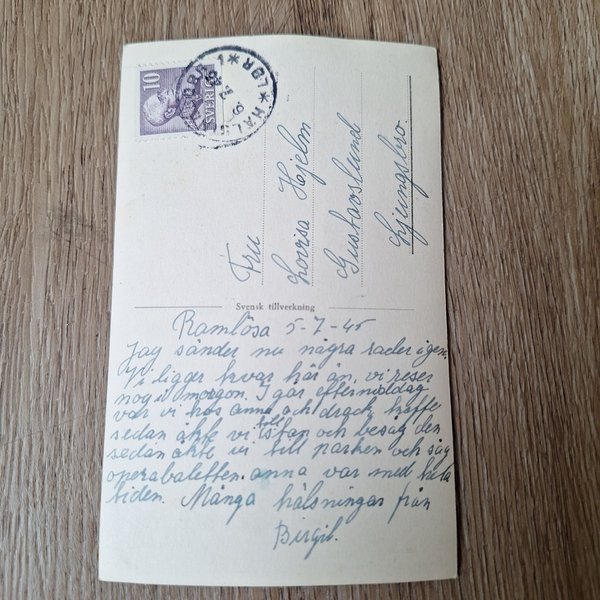 10
SVERIGE
Fru
Lovisa Hjelm
Gustavslund
Ljungsbro.
Svensk tillverkning
Ramlösa 5-7-45
Jag sänder nu några rader igen.
Vi ligger kvar här än, vi reser
nog i morgon. I går eftermiddag
var vi hos anna och drack kaffe
sedan åkte vi till stan och besåg den
sedan åkte vi till parken och såg
operabaletten. anna var med hela
tiden. Många hälsningar från
Birgit.